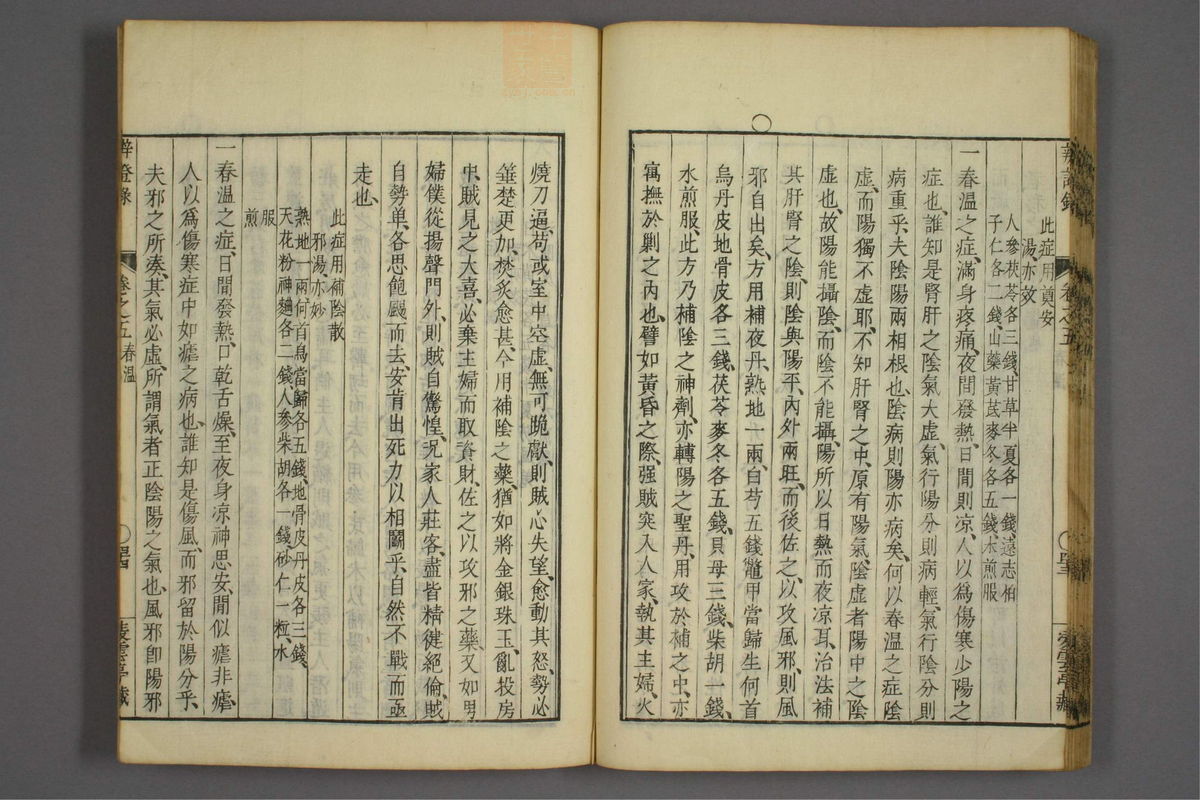 辨證錄
卷之五
此症用奠安
湯、亦效、
人參茯苓各三錢、甘草半夏各一錢、遠志柏
子仁各二錢、山藥黃芪麥冬各五錢、水煎服
一春溫之症、滿身疼痛、夜間發熱、日間則凉、人以爲傷寒少陽之
症也、誰知是腎肝之陰氣大虛、氣行陽分則病輕、氣行陰分則
病重乎、夫陰陽兩相根也、陰病則陽亦病矣、何以春溫之症陰
虛、而陽獨不虛耶、不知肝腎之中、原有陽氣、陰虛者陽中之陰
虛也、故陽能攝陰、而陰不能攝陽、所以日熱而夜凉耳、治法補
其肝腎之陰、則陰與陽平、內外兩旺、而後佐之、以攻風邪、則風
邪自出矣、方用補夜丹、熟地一兩、白芍五錢、鱉甲當歸生何首
烏丹皮地骨皮各三錢、茯苓麥冬各五錢、貝母三錢、柴胡一錢、
水煎服、此方乃補陰之神劑、亦轉陽之聖丹、用攻於補之中、亦
寓撫於剿之內也、譬如黃昏之際、强賊突入人家、執其主婦、火
燒刀逼、苟或室中空虛、無可跪獻、則賊心失望、愈動其怒、勢必
箠楚更加、焚炙愈甚、今用補陰之藥、猶如將金銀珠玉、亂投房
中、賊見之大喜、必棄主婦而取資財、佐之以攻邪之藥、又如男
婦僕從揚聲門外、則賊自驚惶、况家人莊客、盡皆精健絕倫、賊
自勢单、各思飽颺而去、安肯出死力以相鬭乎、自然不戰而亟
走也、
此症用補陰散
邪湯、亦妙、
熟地一兩何首烏當歸各五錢、地骨皮丹皮各三錢、
天花粉神麯各二錢、人參柴胡各一錢、砂仁一粒、水
煎
服
一春溫之症、日間發熱、口乾舌燥、至夜身凉神思安、閒似瘧非瘧、
人以爲傷寒症中如瘧之病也、誰知是傷風、而邪留於陽分乎、
夫邪之所凑、其氣必虛、所謂氣者正陰陽之氣也、風邪卽陽邪
辨證錄
卷之五 春溫